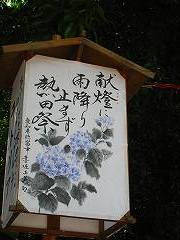 献燈に
雨降り
止まず
熱田祭